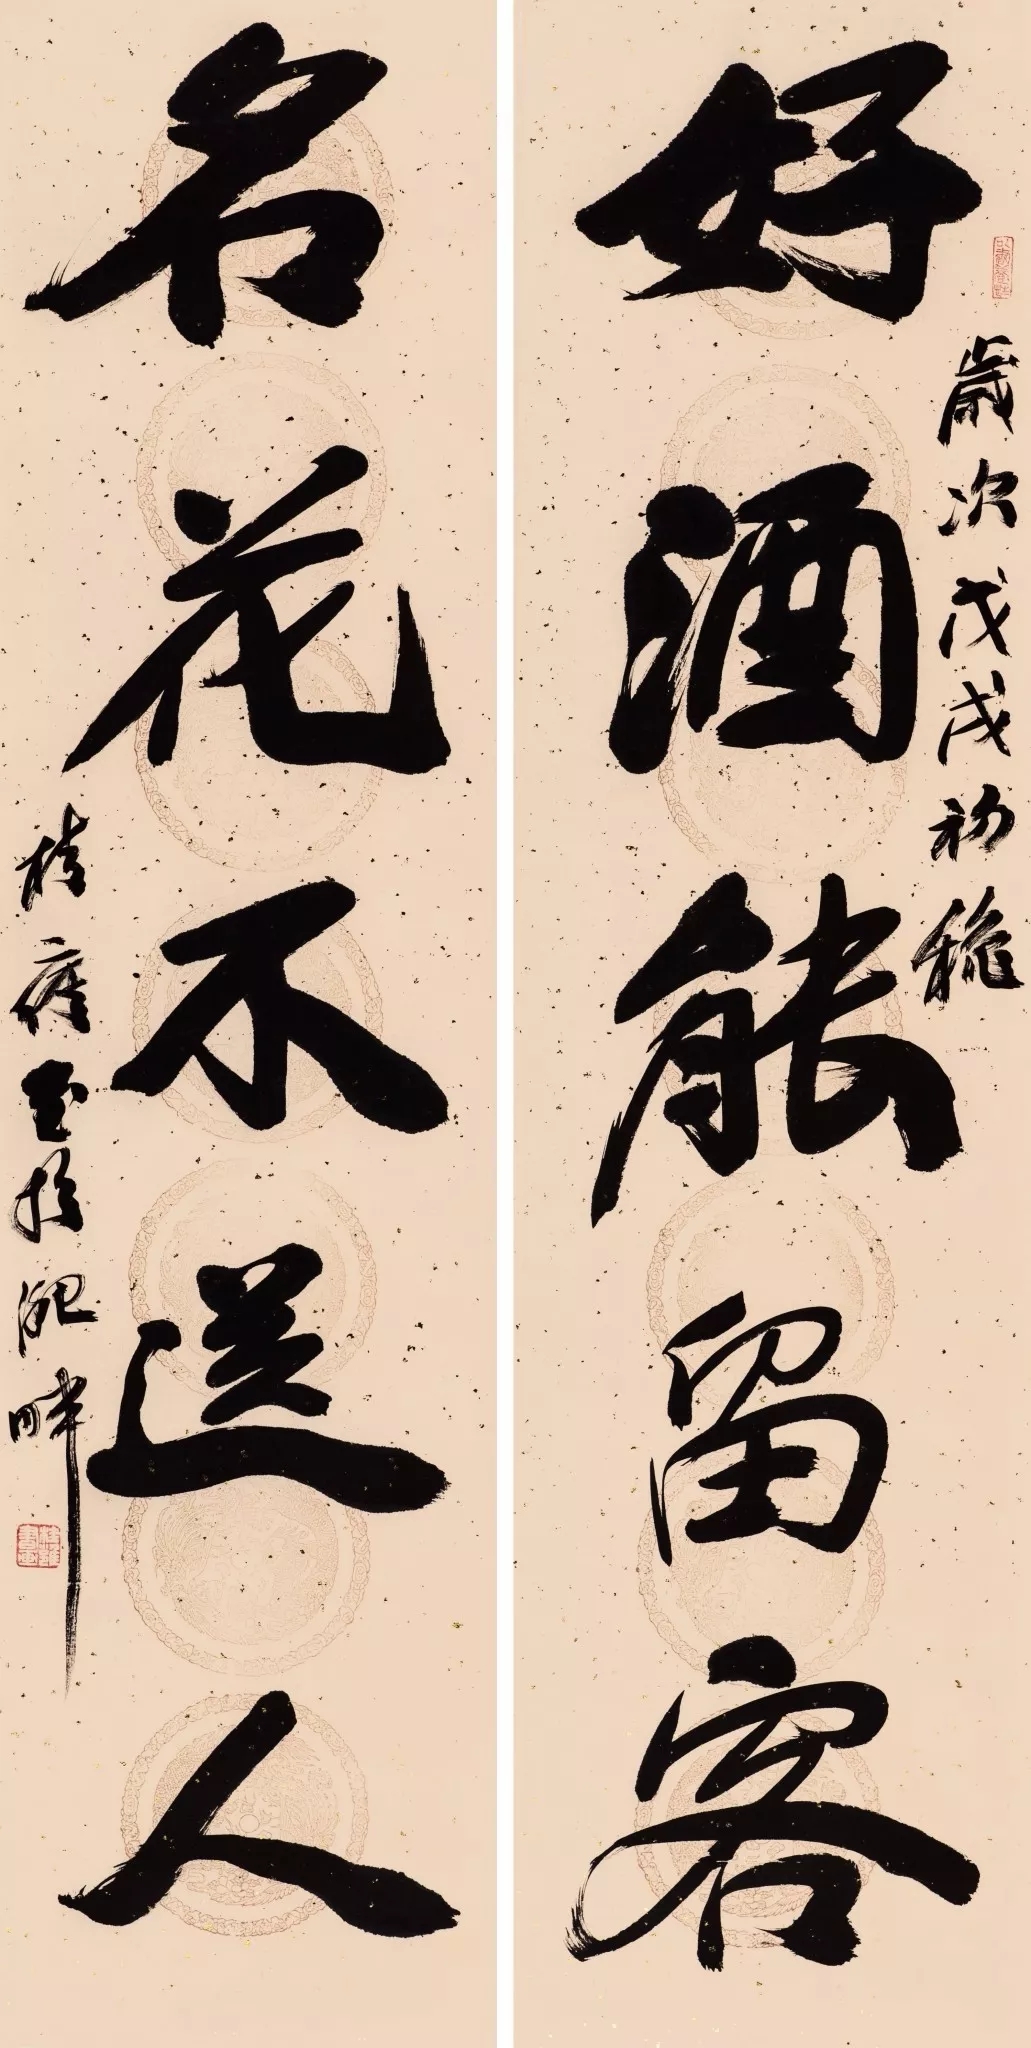 歲次戊戌初穐
好酒能留客
名花不送人
桂雍書於淝畔